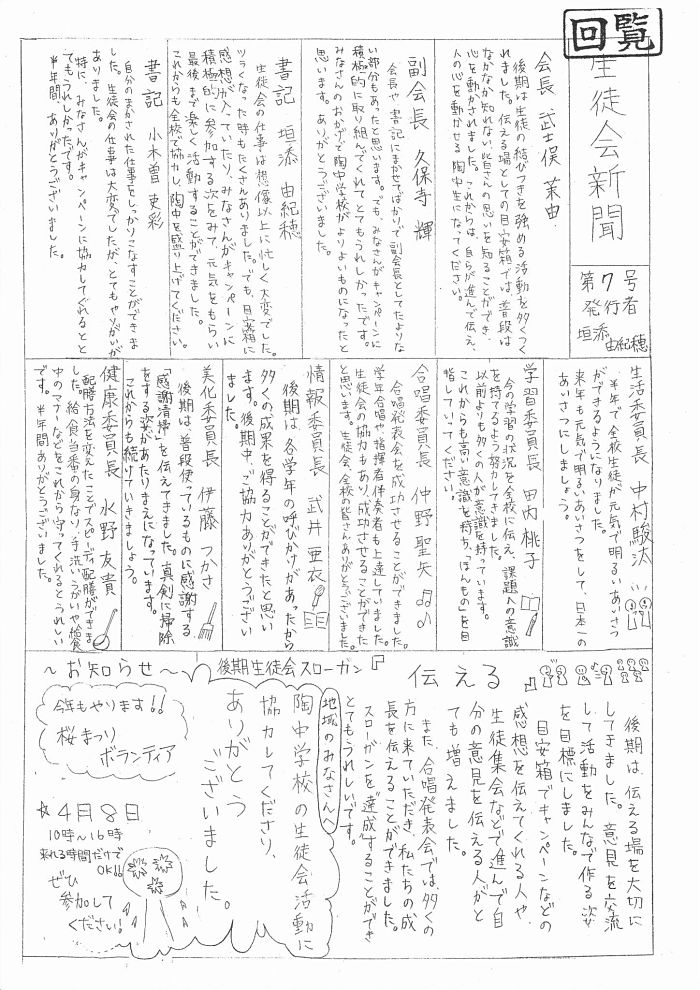 回覧
生徒会新聞
第7号
発行者
垣添由紀穂
会長 武士俣 茉由
後期は生徒の結びつきを強める活動を多くつく
れました。伝える場としての目安箱では、普段は
なかなか知れない皆さんの思いを知ることができ、
心を動かされました。これからは、自らが進んで伝え、
人の心を動かせる陶中生になってください。
副会長 久保寺 輝
会長や書記にまかせてばかりで副会長としてたよりな
い部分もあったと思います。でも、みなさんがキャンペーンに
積極的に取り組んでくれてとてもうれしかったです。
みなさんのおかげで陶中学校がよりよいものになったと
思います。ありがとうございました。
書記 垣添 由紀穂
生徒会の仕事は想像以上に忙しく大変でした。
ツラくなった時もたくさんありました。でも、目安箱に
感想が入っていたり、みなさんがキャンペーンに
積極的に参加する姿をみて、元気をもらい
最後まで楽しく活動することができました。
これからも全校で協力し、陶中を盛り上げてください。
書記 小木曽 吏彩
自分のまかされた仕事をしっかりこなすことができま
した。生徒会の仕事は大変でしたが、とてもやりがいが
ありました。
特に、みなさんがキャンペーンに協力してくれるとと
てもうれしかったです。
半年間、ありがとうございました。
生活委員長 中村駿汰
半年で全校生徒が元気で明るいあいさつ
ができるようになりました。
来年も元気で明るいあいさつをして、日本一の
あいさつにしましょう。
学習委員長 田内 桃子
今の学習の状況を全校に伝え、課題への意識
を持てるよう努力してきました。
以前よりも多くの人が意識を持っています。
これからも高い意識を持ち、「ほんもの」を目
指していってください。
合唱委員長 仲野聖矢
合唱発表会を成功させることができました。
学年合唱や、指揮者伴奏者も上達していました。
生徒会の協力もあり、成功させることができた
と思います。生徒会、全校の皆さんありがとうございました。
情報委員長 武井 亜衣
後期は、各学年の呼びかけがあったから
多くの成果を得ることができたと思い
ます。後期中、ご協力ありがとうござい
ました。
美化委員長 伊藤 つかさ
後期は普段使っているものに感謝する
「感謝清掃」を伝えてきました。真剣に掃除
をする姿があたりまえになっています。
これからも続けていきましょう。
健康委員長 水野 友貴
配膳方法を変えたことでスピーディ配膳ができま
した。給食当番の身なり、手洗い、うがいや給食
中のマナーなどをこれから守ってくれるとうれしい
です。半年間ありがとうございました。
後期生徒会スローガン『伝える』
後期は、伝える場を大切に
してきました。意見を交流
して活動をみんなで作る姿
を目標にしました。
目安箱でキャンペーンなどの
感想を伝えてくれる人や、
生徒集会などで進んで自
分の意見を伝える人がと
ても増えました。
また、合唱発表会では、多くの
方に来ていただき、私たちの成
長を伝えることができました。
スローガンを達成することができ
とてもうれしいです。
地域のみなさんへ
陶中学校の生徒会活動に
協力してくださり、
ありがとう
ございました。
～お知らせ～
今年もやります!!
桜まつり
ボランティア
☆4月8日
10時～16時
来れる時間だけで
OK!!
ぜひ
参加して
ください!